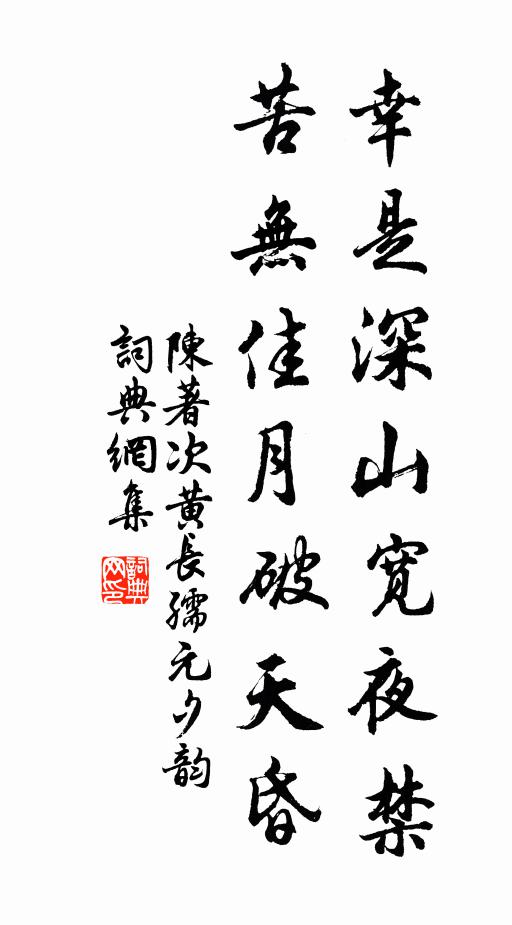 幸是深山寛夜禁
苦無佳月破天昏
陳著次黄長孺元夕韵
詞典網集
詞典网印